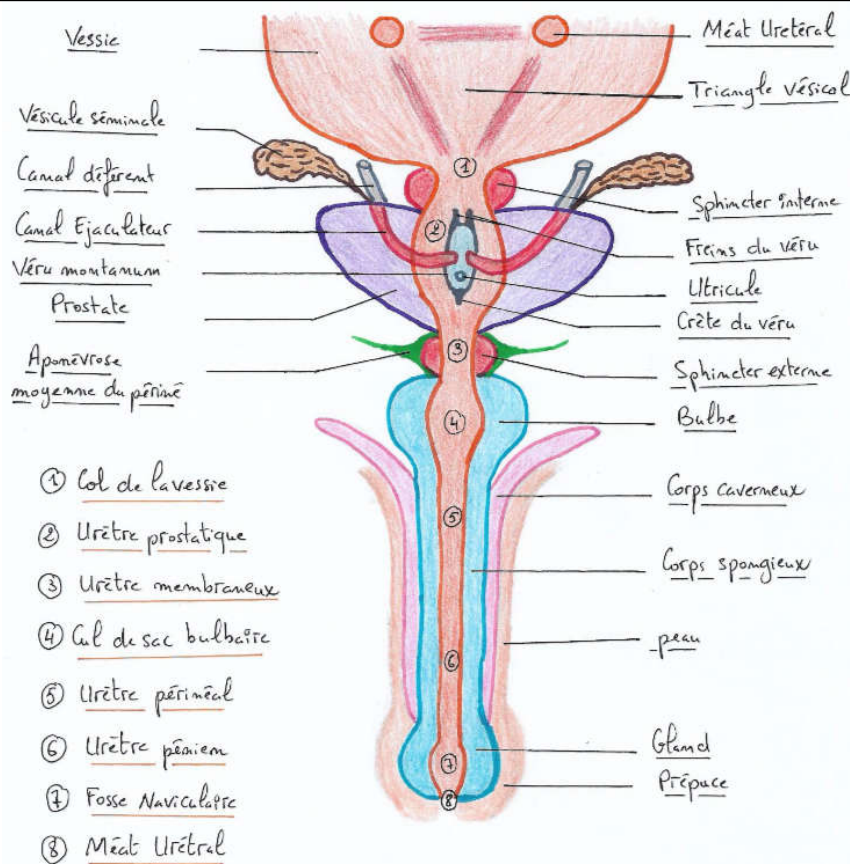 Vessie
Vésicule séminale
Canal déférent
Canal Ejaculateur
Véru montanum
Prostate
Aponévrose
moyenne du périné
Méat Urétéral
Triangle vésical
Sphincter interne
Freins du véru
Utricule
Crète du véru
Sphincter externe
Bulbe
Corps caverneux
Corps spongieux
peau
Gland
Prépuce
① Col de la vessie
② Urètre prostatique
③ Urètre membraneux
④ Cul de sac bulbaire
⑤ Urètre périnéal
⑥ Urètre pénien
⑦ Fosse Naviculaire
⑧ Méat Urétral
①
②
③
④
⑤
⑥
⑦
⑧